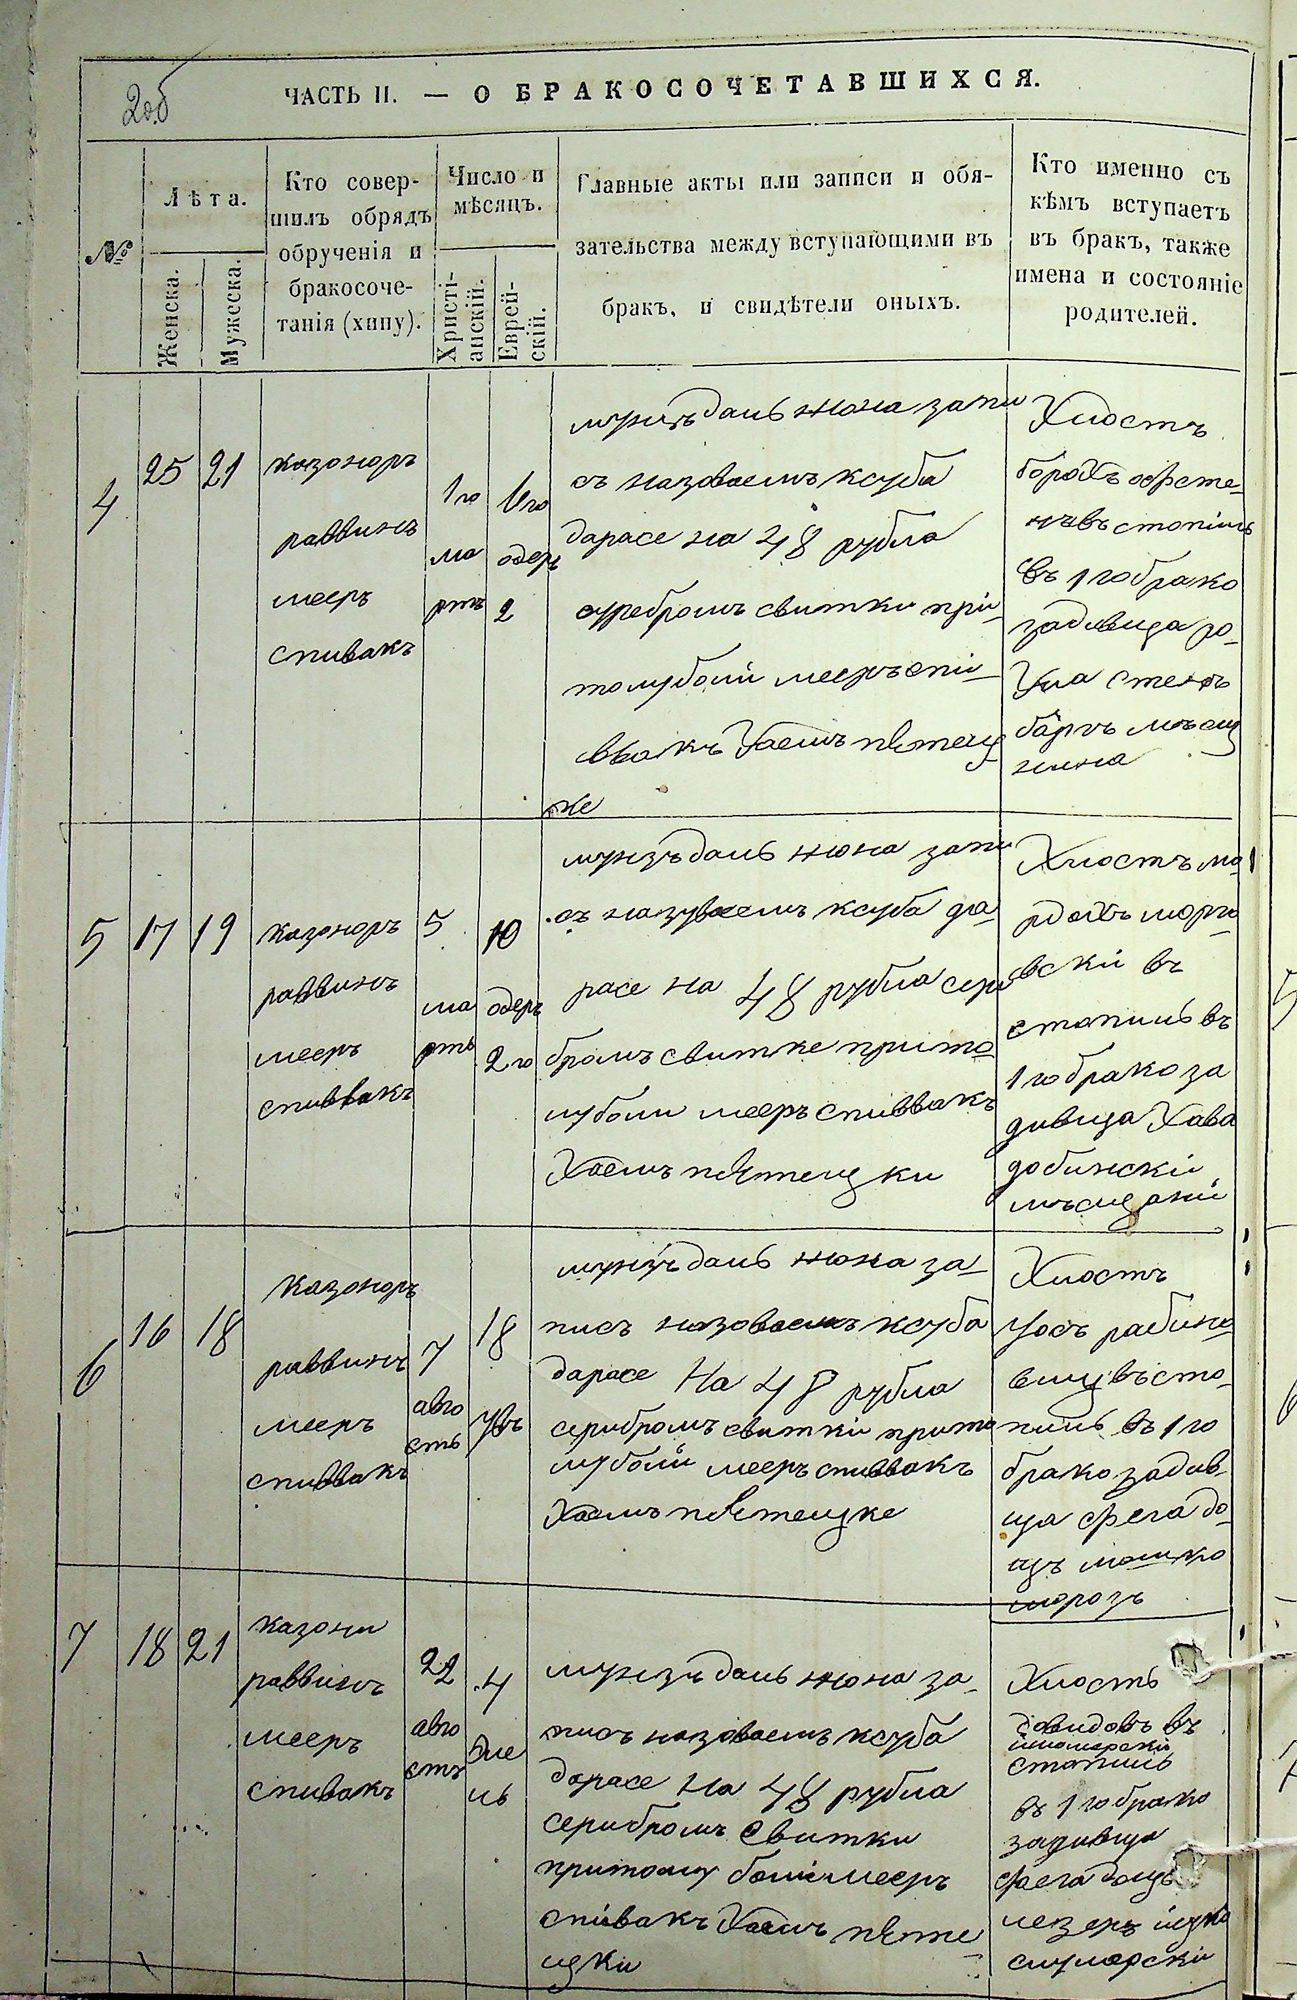 2об
ЧАСТЬ II. — О БРАКОСОЧЕТАВШИХСЯ.
№
Лѣта.
Женска.
Мужеска.
Кто совер-
шилъ обрядъ
обрученія и
бракосоче-
танія (хипу).
Число и
мѣсяцъ.
Христі-
анскій.
Еврей-
скій.
Главные акты или записи и обя-
зательства между вступающими въ
бракъ, и свидѣтели оныхъ.
Кто именно съ
кѣмъ вступаетъ
въ бракъ, также
имена и состояніе
родителей.
4
25
21
казоноръ
раввинъ
мееръ
спивакъ
1го
ма
ртъ
одеръ
2
мунзъ далъ жона запи
съ назоваемъ ксуба
дарасе на 48 рубла
сребромъ свитки прі-
томуболи мееръ спі-
ввакъ Хаемъ пятецк
же
Хлостъ
въ 1го брако
задивица
5
17
19
казоноръ
раввинъ
мееръ
спиввакъ
5
ма
ртъ
10
одеръ
2го
мунзъ далъ жона запи
съ назуваемъ ксуба да
расе на 48 рубла сере
бромъ свитке прито
муболи мееръ спиввакъ
Хаемъ пятецки
Хлостъ мо
рдохъ
вскі въ
стопилъ въ
1го брако за
дивица Хава
добински
мъсщаній
6
16
18
казоноръ
раввинъ
мееръ
спиввакъ
7
авго
сть
18
мунзъ далъ жона за-
писъ назоваемъ ксуба
дарасе На 48 рубла
серибромъ свиткі прито
муболи мееръ спиввакъ
Хаемъ пятецке
Хлостъ
въ сто-
пилъ въ 1го
брако задив-
ца фега до-
цъ мошко
морозъ
7
18
21
казони
раввинъ
мееръ
спивакъ
22
авго
стъ
4
эле
лъ
мунзъ далъ жона за-
писъ назоваемъ ксуба
дарасе на 48 рубла
серибромъ Свитки
притому боли мееръ
співакъ Хаемъ пяте-
цки
Хлостъ
довидовъ въ
стопилъ
въ 1го брако
задивица
фега доцъ
лезеръ